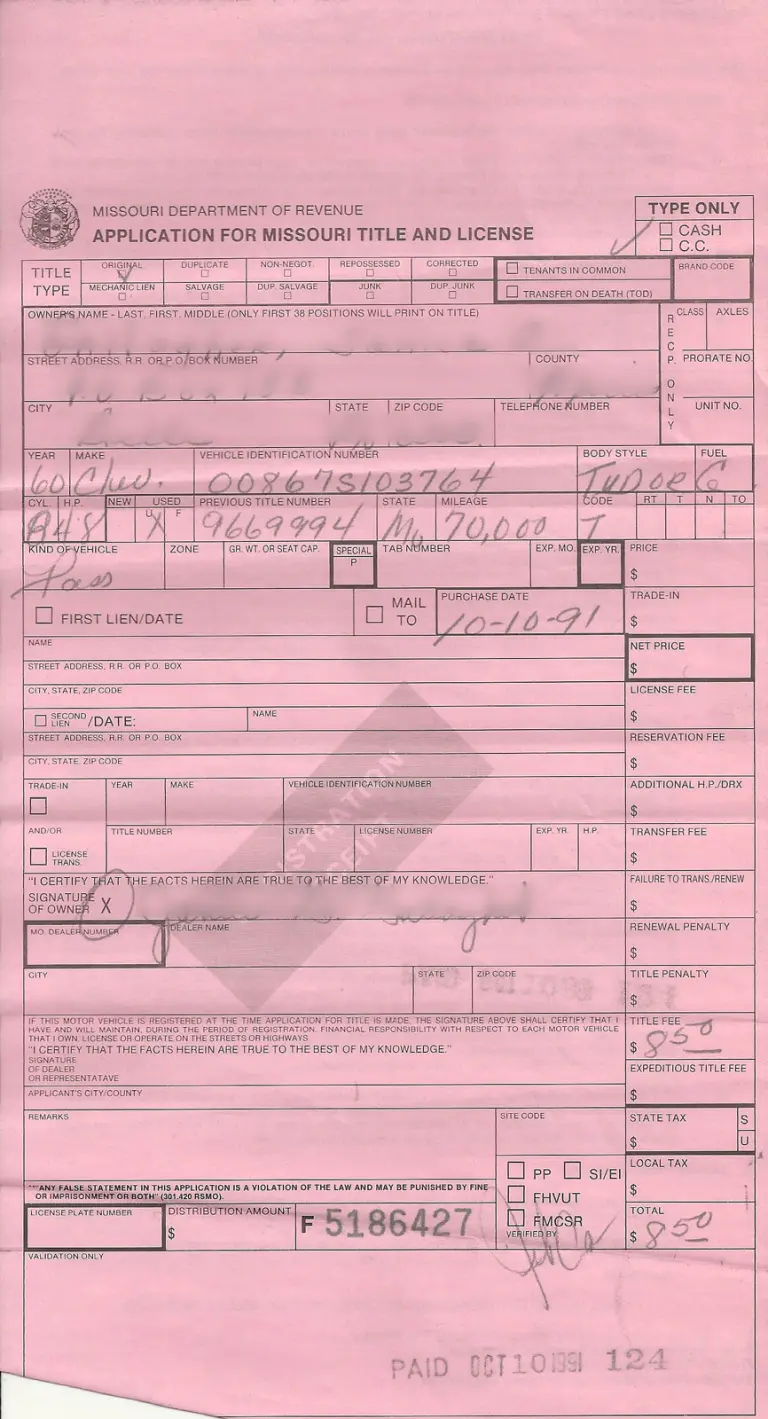 MISSOURI DEPARTMENT OF REVENUE
APPLICATION FOR MISSOURI TITLE AND LICENSE
TYPE ONLY
CASH
C.C.
TITLE TYPE
ORIGINAL DUPLICATE NON-NEGOT. REPOSSESSED CORRECTED
MECHANIC LIEN SALVAGE DUP. SALVAGE JUNK DUP. JUNK
TENANTS IN COMMON
TRANSFER ON DEATH (TOD)
BRAND CODE
OWNER'S NAME - LAST, FIRST, MIDDLE (ONLY FIRST 38 POSITIONS WILL PRINT ON TITLE)
RECP. ONLY
CLASS AXLES
STREET ADDRESS, R.R. OR P.O. BOX NUMBER COUNTY PRORATE NO.
CITY STATE ZIP CODE TELEPHONE NUMBER UNIT NO.
YEAR MAKE VEHICLE IDENTIFICATION NUMBER BODY STYLE FUEL
60 Chev. 00867S103764 TUDOR G
CYL. H.P. NEW USED PREVIOUS TITLE NUMBER STATE MILEAGE CODE RT T N TO
U F
48 X 9669994 Mo 70,000 T
KIND OF VEHICLE ZONE GR. WT. OR SEAT CAP. SPECIAL P TAB NUMBER EXP. MO. EXP. YR. PRICE
Pass $
FIRST LIEN/DATE MAIL TO PURCHASE DATE TRADE-IN
10-10-91 $
NAME NET PRICE
STREET ADDRESS, R.R. OR P.O. BOX $
CITY, STATE, ZIP CODE LICENSE FEE
SECOND LIEN /DATE: NAME $
STREET ADDRESS, R.R. OR P.O. BOX RESERVATION FEE
CITY, STATE, ZIP CODE $
TRADE-IN YEAR MAKE VEHICLE IDENTIFICATION NUMBER ADDITIONAL H.P./DRX
$
AND/OR TITLE NUMBER STATE LICENSE NUMBER EXP. YR. H.P. TRANSFER FEE
LICENSE TRANS. $
"I CERTIFY THAT THE FACTS HEREIN ARE TRUE TO THE BEST OF MY KNOWLEDGE." FAILURE TO TRANS./RENEW
SIGNATURE OF OWNER X $
MO. DEALER NUMBER DEALER NAME RENEWAL PENALTY
$
CITY STATE ZIP CODE TITLE PENALTY
$
IF THIS MOTOR VEHICLE IS REGISTERED AT THE TIME APPLICATION FOR TITLE IS MADE, THE SIGNATURE ABOVE SHALL CERTIFY THAT I
HAVE AND WILL MAINTAIN, DURING THE PERIOD OF REGISTRATION, FINANCIAL RESPONSIBILITY WITH RESPECT TO EACH MOTOR VEHICLE
THAT I OWN, LICENSE OR OPERATE ON THE STREETS OR HIGHWAYS.
TITLE FEE
$ 8 50
"I CERTIFY THAT THE FACTS HEREIN ARE TRUE TO THE BEST OF MY KNOWLEDGE."
SIGNATURE
OF DEALER
OR REPRESENTATAVE
EXPEDITIOUS TITLE FEE
$
APPLICANT'S CITY/COUNTY
REMARKS SITE CODE STATE TAX S
$ U
PP SI/EI LOCAL TAX
FHVUT $
FMCSR
VERIFIED BY
""ANY FALSE STATEMENT IN THIS APPLICATION IS A VIOLATION OF THE LAW AND MAY BE PUNISHED BY FINE
OR IMPRISONMENT OR BOTH" (301.420 RSMO).
LICENSE PLATE NUMBER DISTRIBUTION AMOUNT $ F 5186427 TOTAL
$ 8 50
VALIDATION ONLY
PAID OCT 10 1991 124